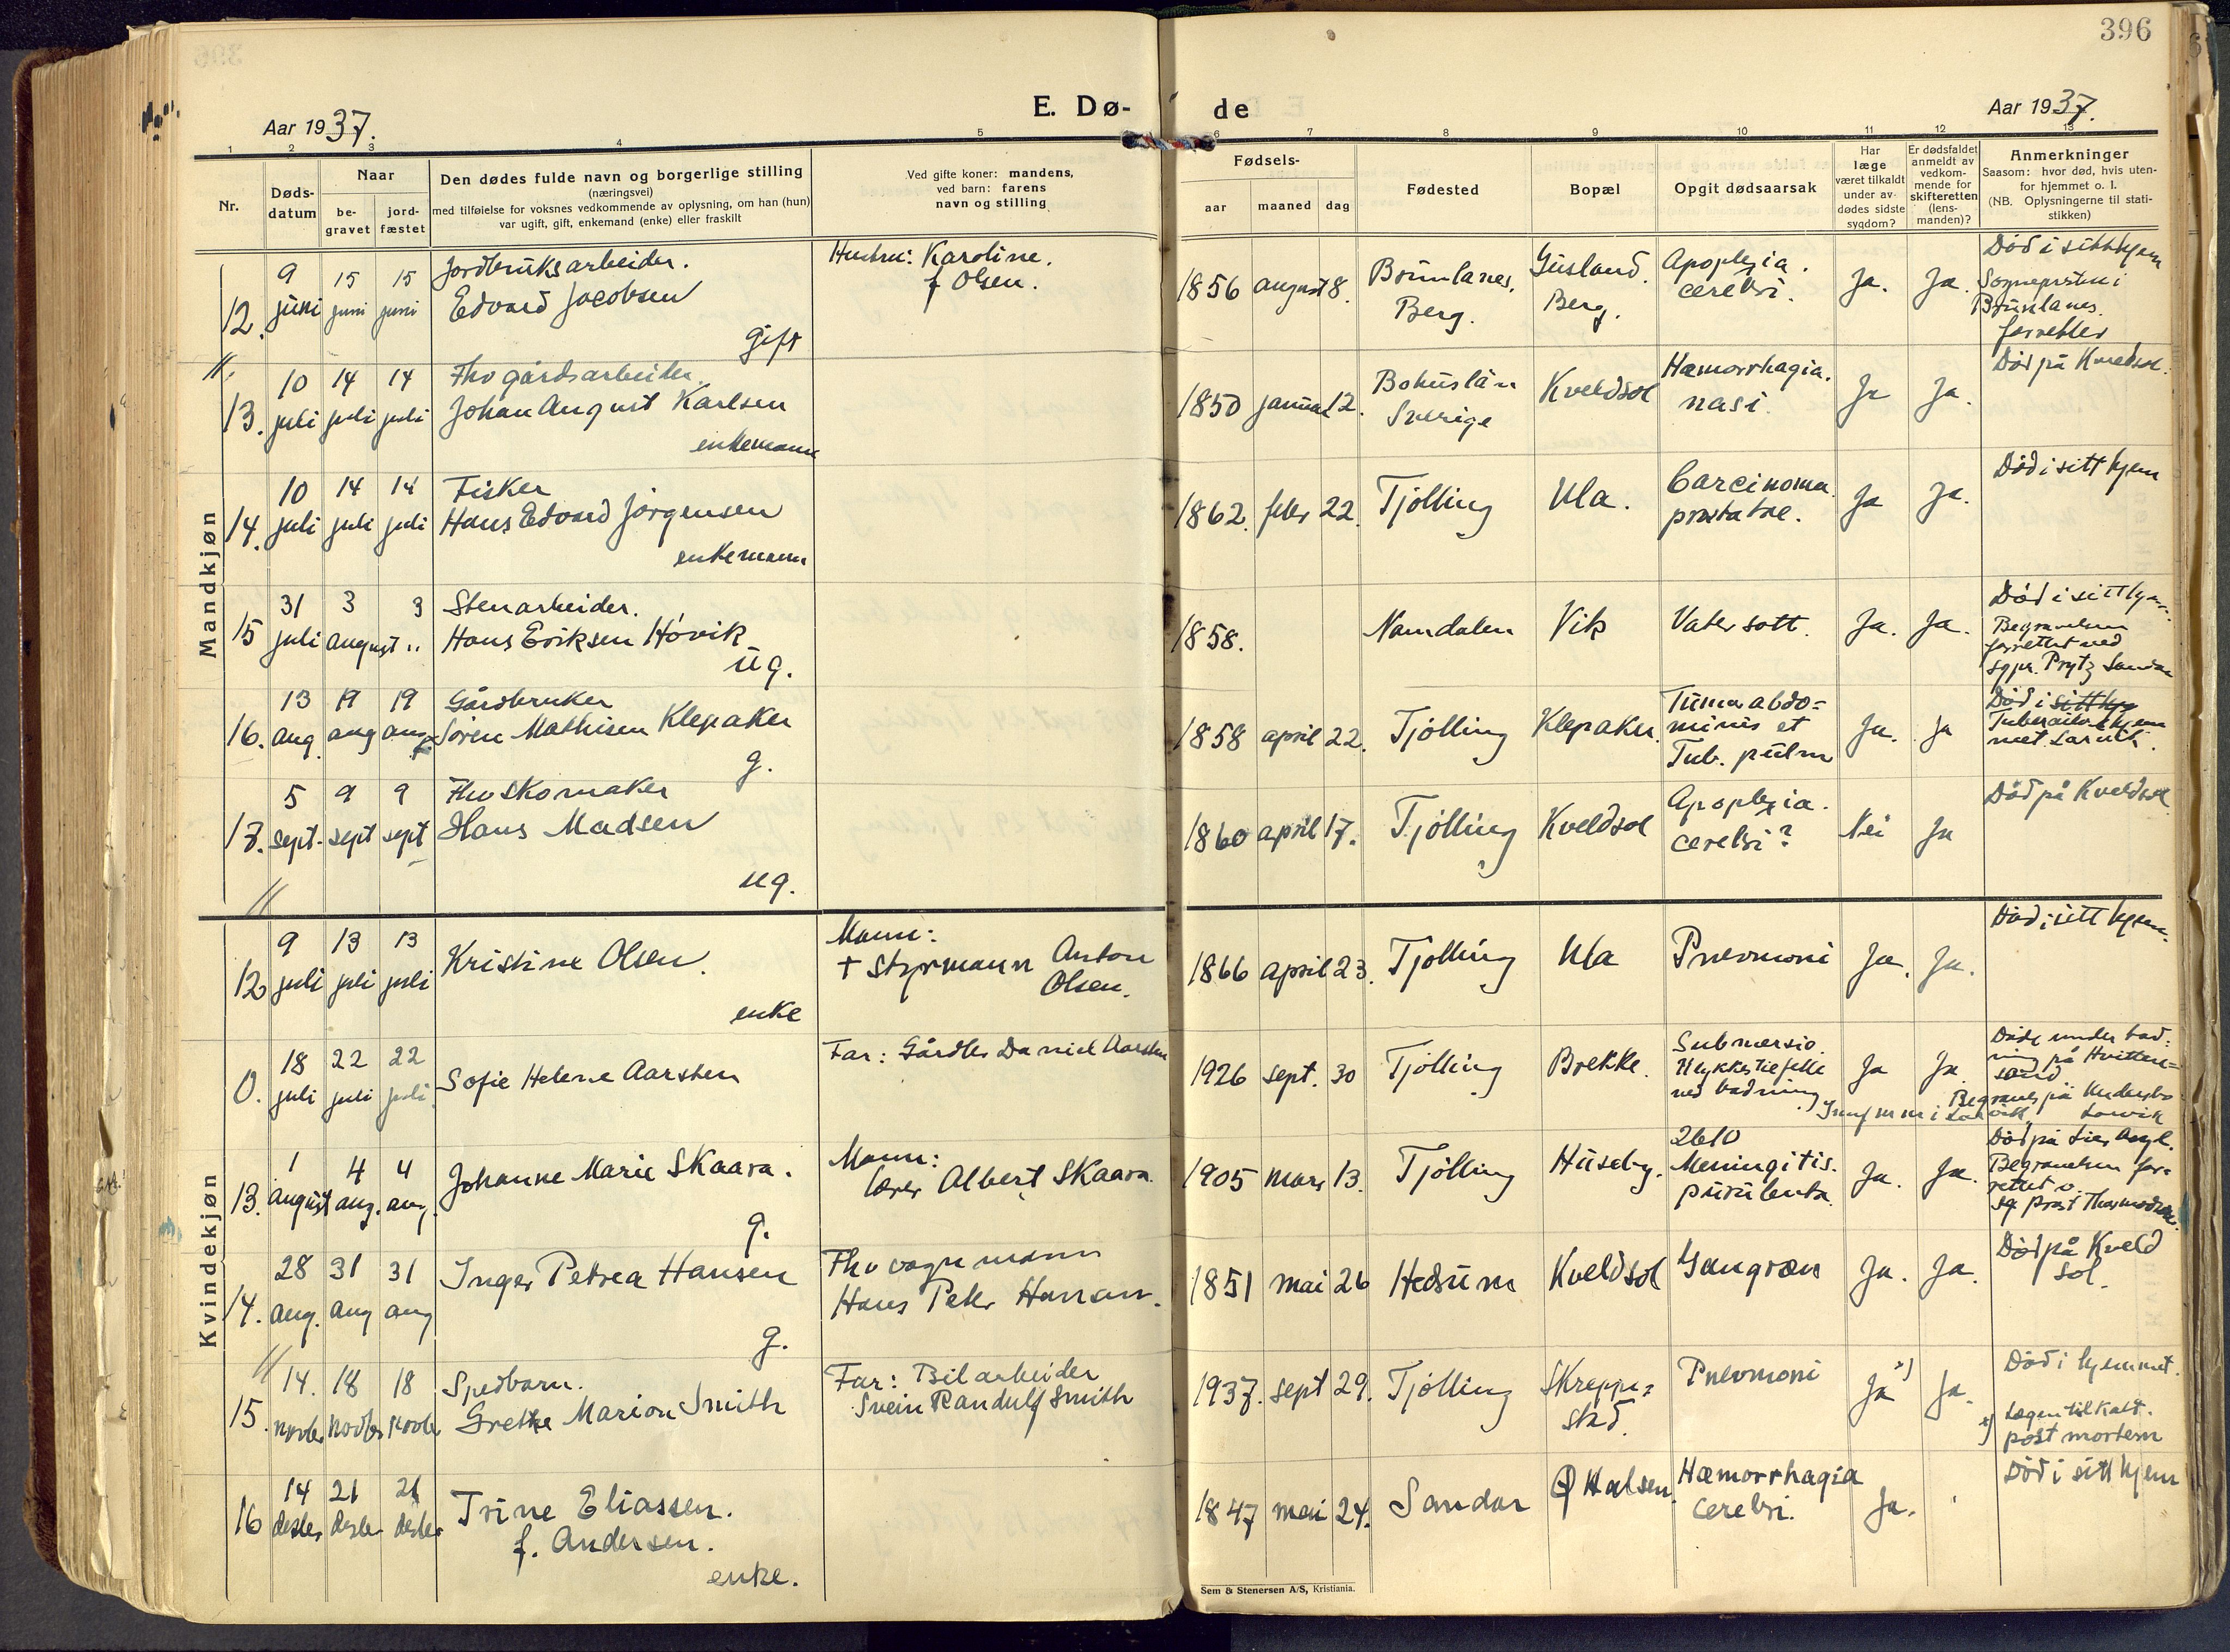 396
Aar 1937.
E. Dø-
de
Aar 1937.
1 2 3 4 5 6 7 8 9 10 11 12 13
Nr.
Døds-
datum
Naar
be-
gravet
jord-
fæstet
Den dødes fulde navn og borgerlige stilling
(næringsvei)
med tilføielse for voksnes vedkommende av oplysning, om han (hun)
var ugift, gift, enkemand (enke) eller fraskilt
Ved gifte koner: mandens,
ved barn: farens
navn og stilling
Fødsels-
aar maaned dag
Fødested
Bopæl
Opgit dødsaarsak
Har
læge
været tilkaldt
under av-
dødes sidste
sygdom?
Er dødsfaldet
anmeldt av
vedkom-
mende for
skifteretten
(lens-
manden)?
Anmerkninger
Saasom: hvor død, hvis uten-
for hjemmet o. l.
(NB. Oplysningerne til stati-
stikken)
Mandkjøn
12. 9 juni 15 juni 15 juni
Jordbruksarbeider.
Edvard Jacobsen
gift
Hustru: Karoline.
f Olsen.
1856 august 8.
Brunlanes.
Berg.
Gusland.
Berg.
Apoplexia.
cerebri.
Ja. Ja.
Død i sitt hjem
Sognepresten i
Brunlanes.
forretter
13. 10 juli 14 juli 14 juli
Fhv gårdsarbeider.
Johan August Karlsen
enkemann
1850 januar 12.
Bohuslän
Sverige
Kveldsol
Hæmorrhagia.
nasi.
Ja Ja.
Død på Kveldsol.
14. 10 juli 14 juli 14 juli
Fisker
Hans Edvard Jørgensen
enkemann
1862. febr 22.
Tjølling
Ula.
Carcinoma
prostatae.
Ja Ja.
Død i sitt hjem
15 31 juli 3 august 3 "
Stenarbeider.
Hans Eriksen Høvik
ug.
1858.
Namdalen
Vik
Vatersott.
Ja. Ja.
Død i sitt hjem.
Begravelsen
forrettet ved
sgpr. Prytz Sandar
16. 13 aug. 19 aug 19 aug
Gårdbruker
Søren Mathisen Klepaker
g.
1858 april 22.
Tjølling
Klepaker.
Tumor abdo=
minis et
Tub. pulm
Ja. Ja
Død i sitt hj
Tuberkulosehjem
met Larvik.
17. 5 sept. 9 sept 9 sept
Fhv skomaker
Hans Madsen
ug.
1860 april 17.
Tjølling
Kveldsol
Apoplexia.
cerebri?
Nei Ja
Død på Kveldsol
Kvindekjøn
12 9 juli 13 juli 13 juli
Kristine Olsen.
enke
Mann:
† Styrmann Anton
Olsen.
1866 april 23.
Tjølling
Ula
Pnevmoni
Ja. Ja.
Død i sitt hjem.
0. 18 juli 22 juli 22 juli.
Sofie Helene Aarsten
Far: Gårdbr Daniel Aarsten
1926 sept. 30
Tjølling
Brekke.
Submersio.
Ulykkestilfelle
ved badning
Ja Ja.
Døde under bad=
ning på Hvitten=
sand
Begraves på Undersbo
Larvik
13. 1 august 4 aug. 4 aug.
Johanne Marie Skaara.
g.
Mann:
lærer Albert Skaara.
1905 mars 13.
Tjølling
Huseby.
2610
Meningitis.
purulenta.
Ja. Ja.
Død på Lier Asyl.
Begravelsen for=
rettet v.
sg prest Thormodsen.
14. 28 aug. 31 aug 31 aug
Inger Petrea Hansen
g.
Fhv vognmann
Hans Peter Hansen.
1851 mai 26
Hedrum
Kveldsol
Gangræn
Ja. Ja.
Død på Kveld
sol.
15. 14. novbr 18 novbr 18 novbr
Spedbarn.
Grethe Marion Smith
Far: Bilarbeider
Svein Randulf Smith
1937. sept 29.
Tjølling
Skreppe=
stad.
Pnevmoni
Ja x) Ja.
Død i hjemmet.
x) Lægen tilkalt.
post mortem
16 14 desbr 21 desbr 21 desbr
Trine Eliassen.
f. Andersen.
enke.
1847 mai 24.
Sandar
Ø Halsen.
Hæmorrhagia
cerebri.
Ja.
Død i sitt hjem
Sem & Stenersen A/S, Kristiania.